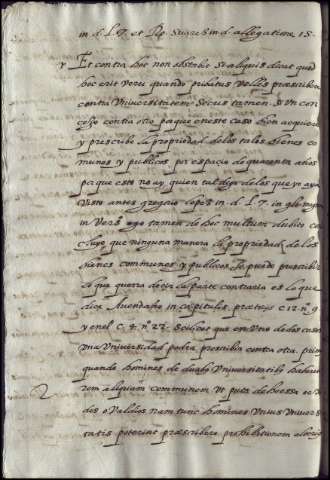 in d. L. 7. et Pe. Suares in d. allegatione 15.
Et contra hoc non obstabit si aliquis dicat quod
hoc erit veru quando privatus vellet præscribere
contra Universitatem secus tamen si Un con
cejo contra otro porque en este caso bien acquiere
y prescribe la propriedad de los tales bienes co
munes y publicos por espacio de quarenta años
porque esto no ay quien tal diga de los que yo aya
visto antes gregorio lopes in d. L. 7. in glo. magna
in verb. ego tamen de hoc multum dubito con
cluye que ninguna manera de propriedad de los
bienes communes y publicos se puede prescribir
lo que queria decir la parte contraria es lo que
dice Avendaño in capitulis prætoris C. 12. n. 9
y en el C. 4. n. 22. scilicet que en uno de dos casos
una Universidad podra prescribir contra otra primo
quando homines de duabus Universitatibus haberent
rem aliquam communem ut puta dehessa exi
dos o Valdios nam tunc homines unius Univer
tatis poterint præscribere prohibitionem